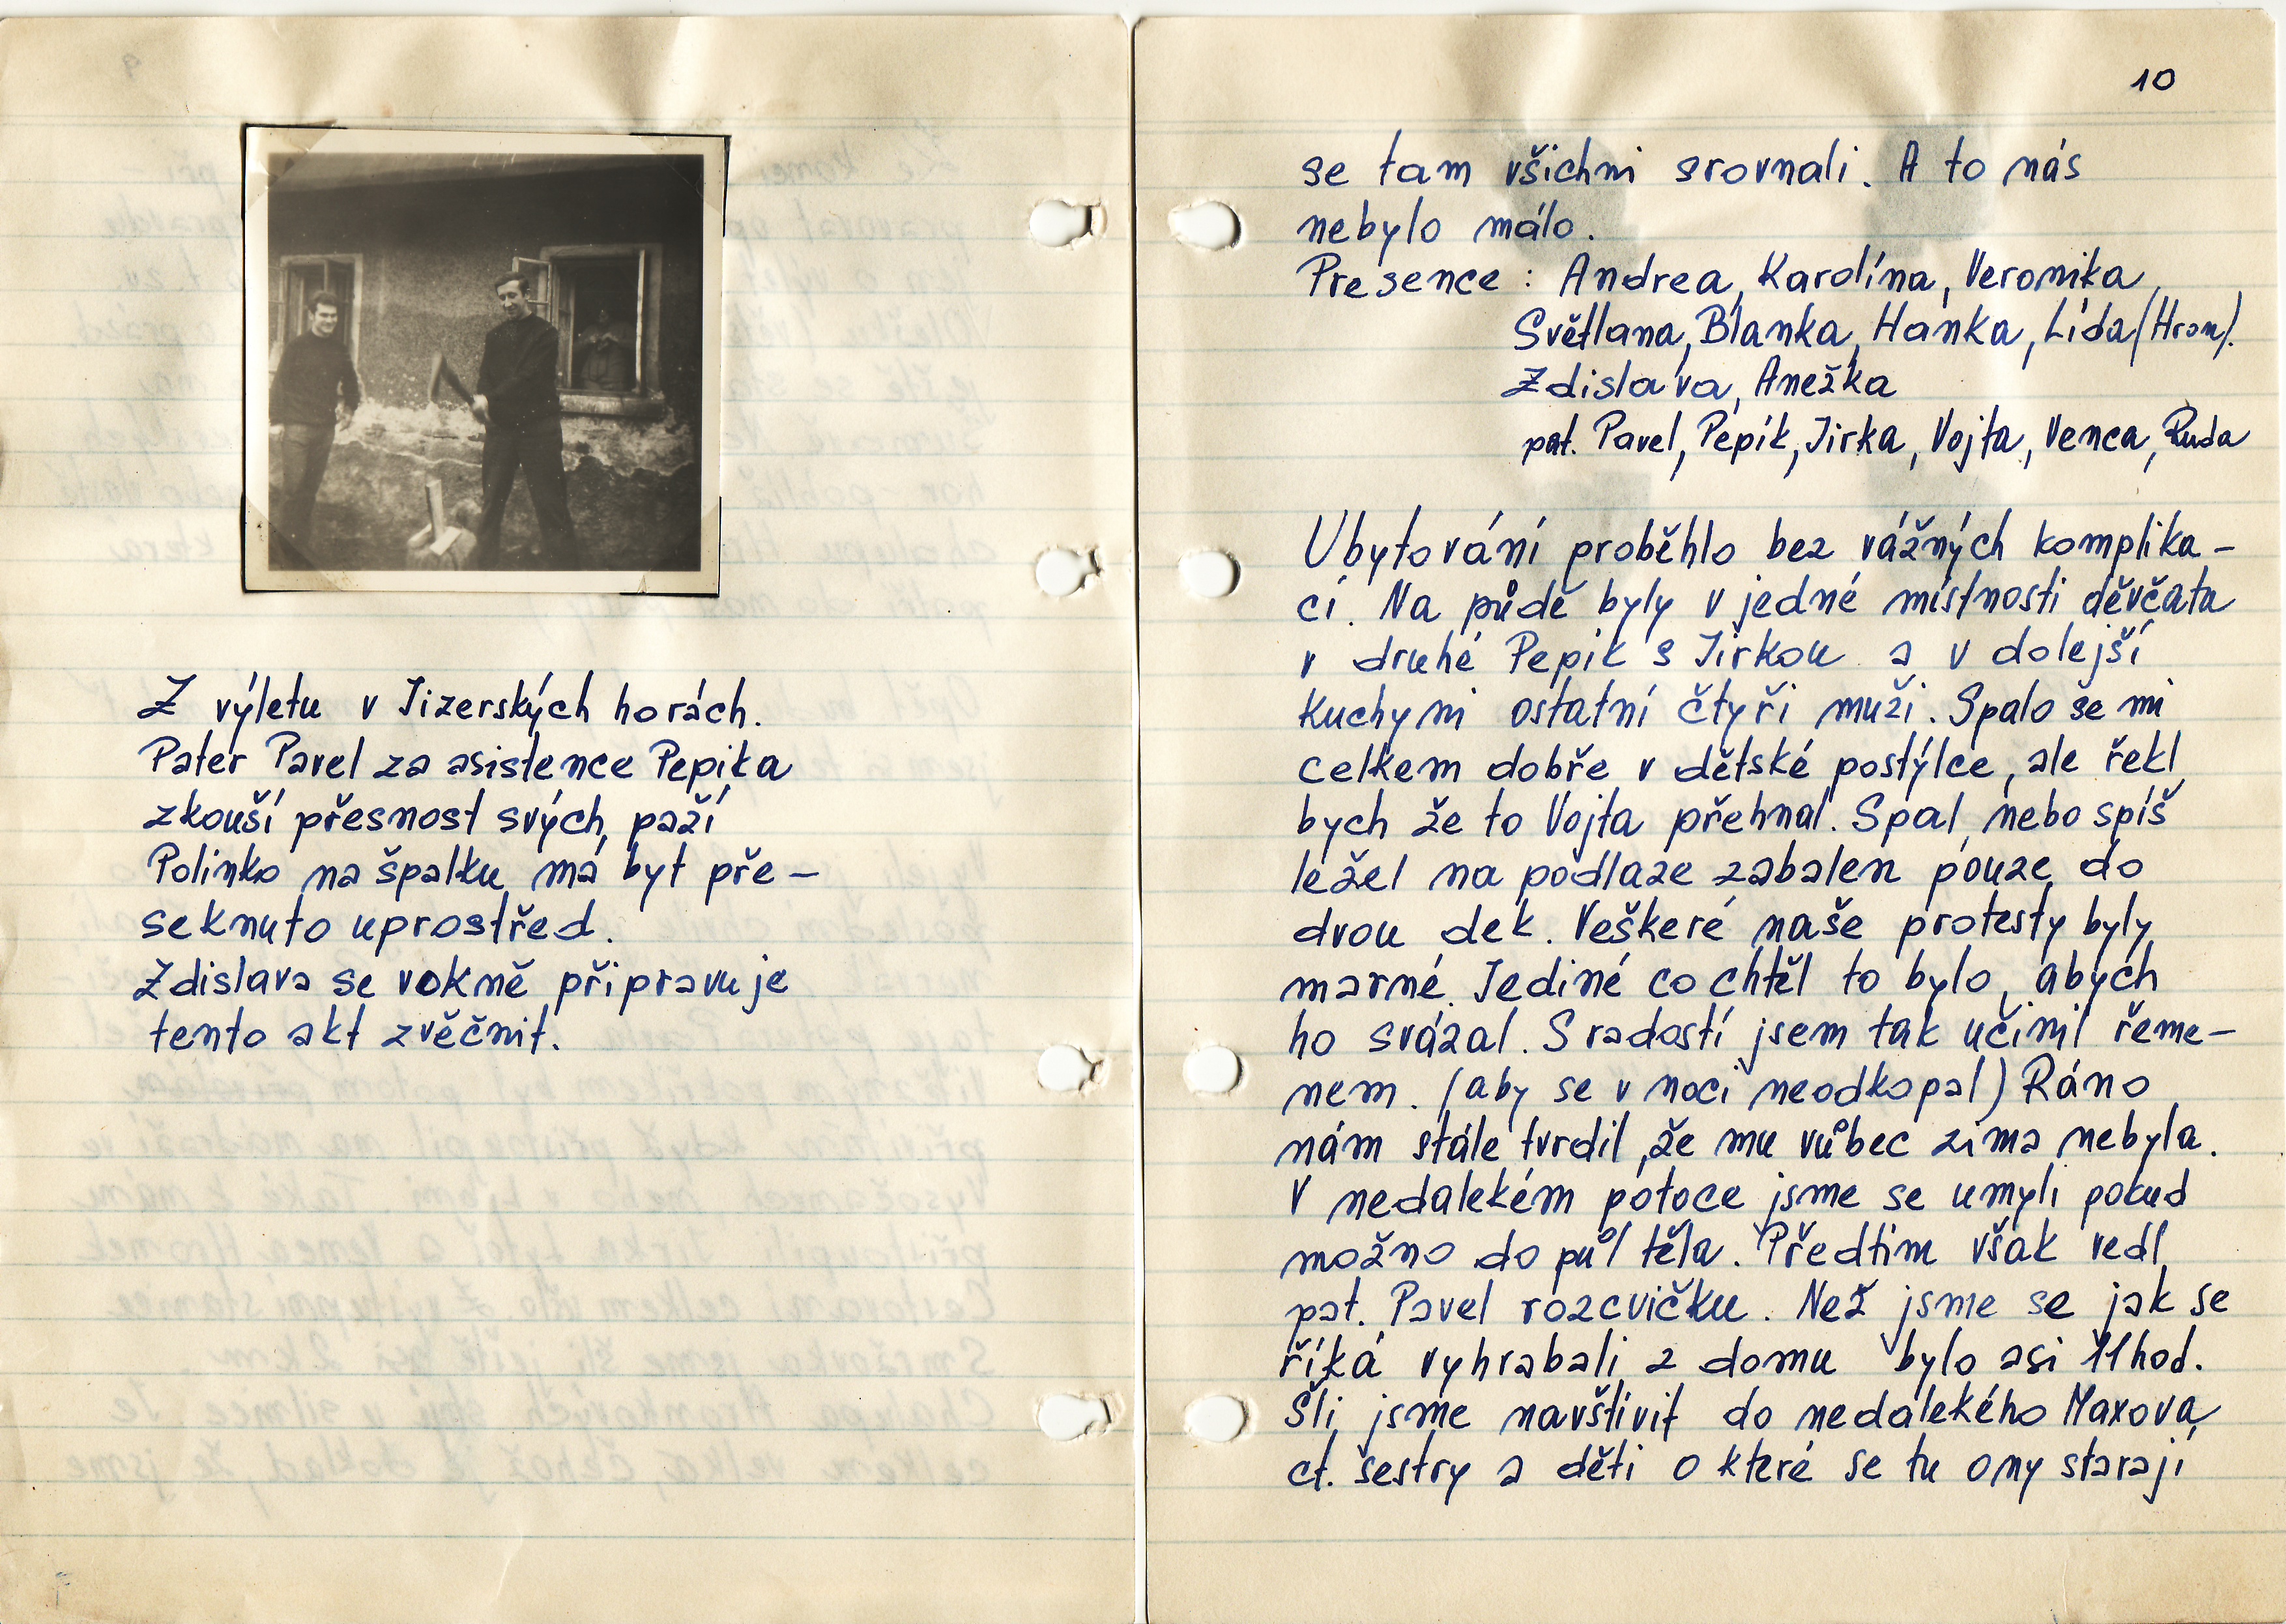 Z výletu v Jizerských horách.
Pater Pavel za asistence Pepika
zkouší přesnost svých paží
Polinko na špalku má byt pře-
seknuto uprostřed.
Zdislava se vokně připravuje
tento akt zvěčnit.
10
se tam všichni srovnali. A to nás
nebylo málo.
Presence: Andrea, Karolína, Veronika,
Světlana, Blanka, Hanka, Lída (Hrom).
Zdislava, Anežka
pat. Pavel, Pepík, Jirka, Vojta, Venca, Ruda
Ubytování proběhlo bez vážných komplika-
cí. Na půdě byly v jedné místnosti děvčata
v druhé Pepik s Jirkou a v dolejší
kuchyni ostatní čtyři muži. Spalo se mi
celkem dobře v dětské postýlce, ale řekl
bych že to Vojta přehnal. Spal, nebo spíš
ležel na podlaze zabalen pouze do
dvou dek. Veškeré naše protesty byly
marné. Jediné co chtěl to bylo, abych
ho svázal. S radostí jsem tak učinil řeme-
nem. (aby se v noci neodkopal) Ráno
nám stále tvrdil, že mu vůbec zima nebyla.
V nedalekém potoce jsme se umyli pokud
možno do půl těla. Předtim však vedl
pat. Pavel rozcvičku. Než jsme se jak se
říká vyhrabali z domu bylo asi 11hod.
Šli jsme navštívit do nedalekého Maxova
ct. sestry a děti o které se tu ony starají